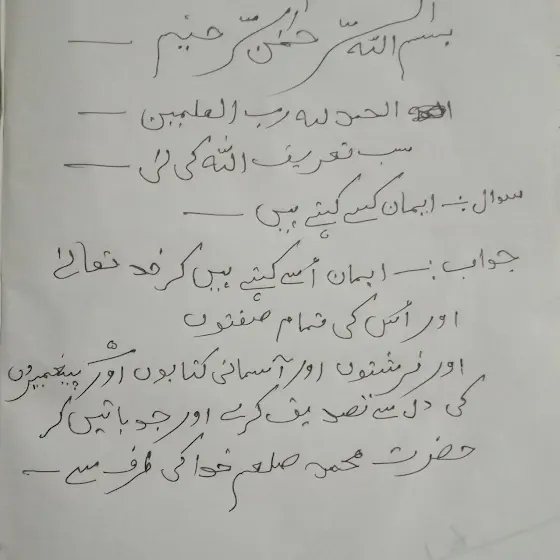 بسم اللہ الرحمٰن الرحیم —
الحمد للہ رب العلمین —
سب تعریف اللہ کی لئ —
سوال :- ایمان کسے کہتے ہیں —
جواب :- ایمان اُسے کہتے ہیں کہ خد تعالیٰ
اور اُس کی تمام صفتوں
اور فرشتوں اور آسمانی کتابوں اور پیغمبروں
کی دل سے تصدیق کرے اور جو باتیں کر
حضرت محمد صلعم خدا کی طرف سے —